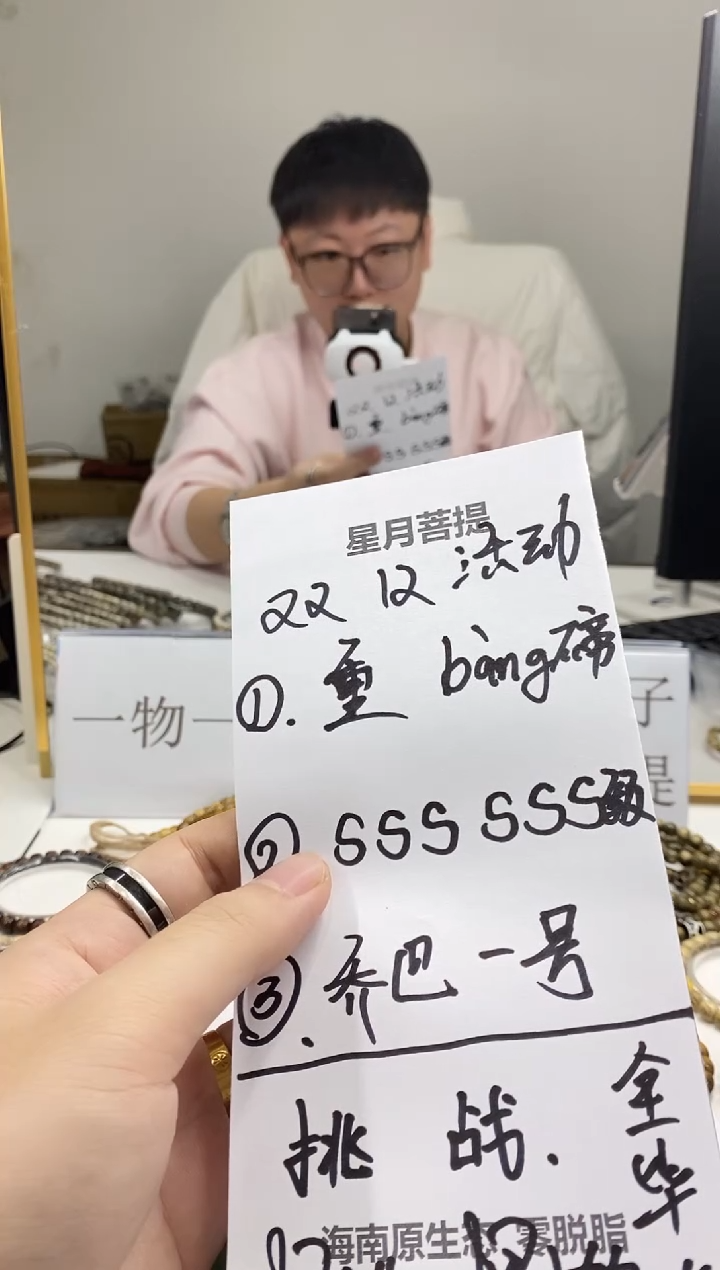 星月菩提
双 12 活动
①. 重 bàng磅
② SSS SSS级
③. 乔巴一号
挑 战. 全
海南原生态 零脱脂
一物一
子
提